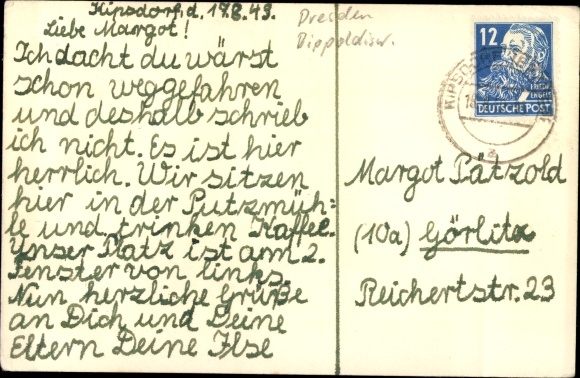 Kipsdorf, d. 17.8.49.
Liebe Margot!
Ich dacht du wärst
schon weggefahren
und deshalb schrieb
ich nicht. Es ist hier
herrlich. Wir sitzen
hier in der Putzmüh=
le und trinken Kaffee.
Unser Platz ist am 2.
Fenster von links.
Nun herzliche Grüße
an Dich und Deine
Eltern Deine Ilse
Dresden
Dippoldisw.
12
FRIEDR.
ENGELS
DEUTSCHE POST
Margot Pätzold
(10a) Görlitz
Reichertstr. 23